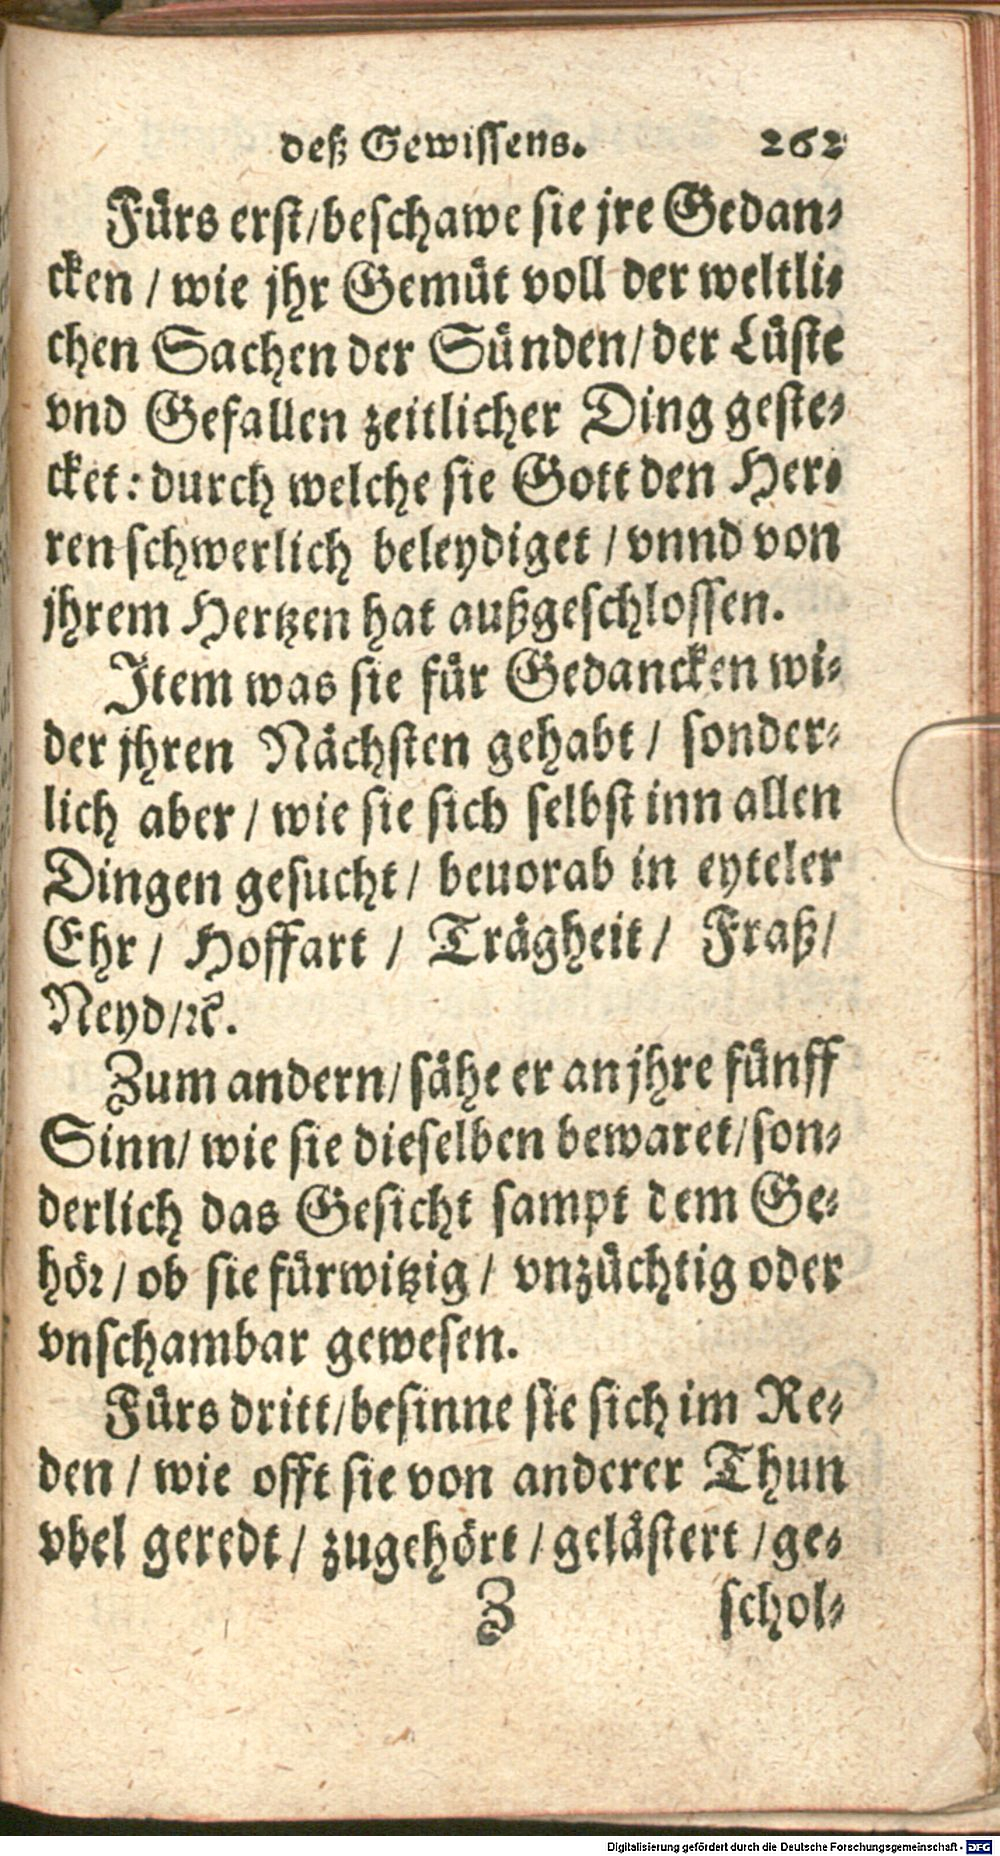 deß Gewissens. 262
Fürs erst/beschawe sie jre Gedan-
cken / wie jhr Gemüt voll der weltli-
chen Sachen der Sünden/der Lüste
vnd Gefallen zeitlicher Ding geste-
cket: durch welche sie Gott den Her-
ren schwerlich beleydiget / vnnd von
jhrem Hertzen hat außgeschlossen.
Item was sie für Gedancken wi-
der jhren Nächsten gehabt / sonder-
lich aber / wie sie sich selbst inn allen
Dingen gesucht / beuorab in eyteler
Ehr / Hoffart / Trägheit / Fraß /
Neyd/ꝛc.
Zum andern/ sähe er an jhre fünff
Sinn/ wie sie dieselben bewaret/son-
derlich das Gesicht sampt dem Ge-
hör / ob sie fürwitzig / vnzüchtig oder
vnschambar gewesen.
Fürs dritt/besinne sie sich im Re-
den / wie offt sie von anderer Thun
vbel geredt / zugehört / gelästert / ge-
Z schol-
Digitalisierung gefördert durch die Deutsche Forschungsgemeinschaft - DFG